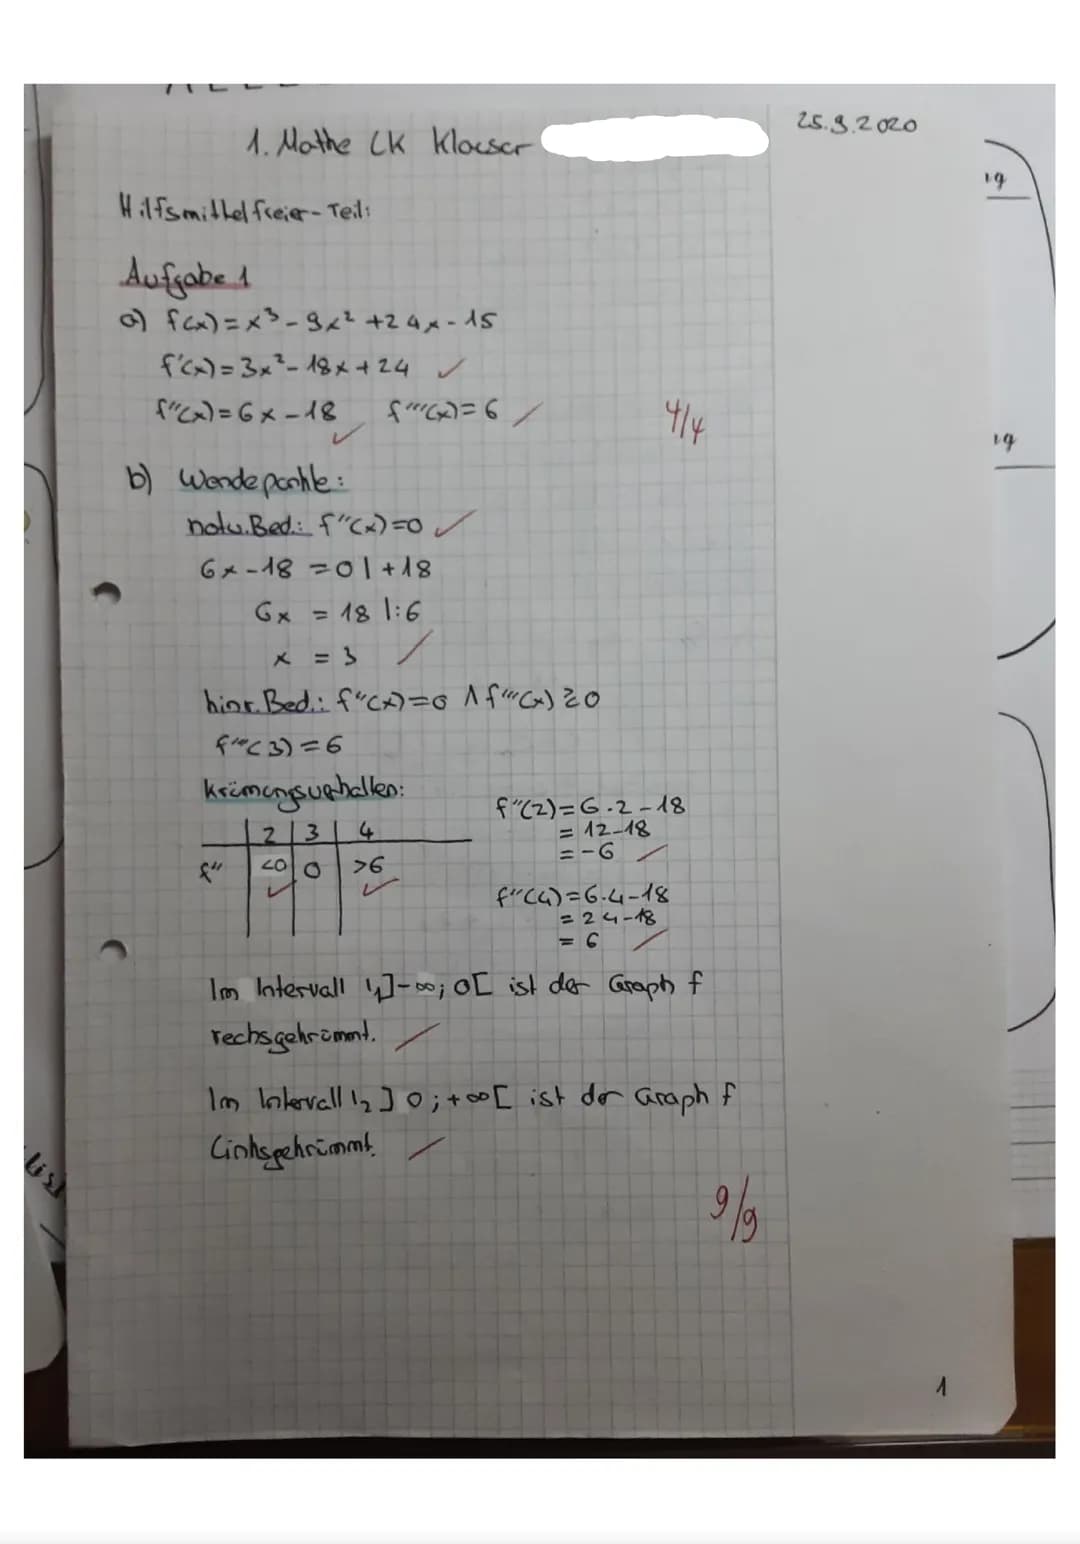 1. Mathe LK Klausur
25.9.2020
Hilfsmittelfreier-Teil:
Aufgabe 1
a) f(x)=x³-9x²+24x-15
f'(x)=3x²-18x+24 ✓
f''(x)=6x-18 ✓ f'''(x)=6 ✓
4/4
b) Wendepunkte:
notw.Bed.: f''(x)=0 ✓
6x-18 =0 |+18
6x = 18 |:6
x = 3 ✓
hinr.Bed.: f''(x)=0 ∧ f'''(x) ≷ 0
f'''(3)=6
Krümungsverhalten:
2 | 3 | 4
f'' | <0 | 0 | >6
f''(2)=6·2-18
= 12-18
= -6
f''(4)=6·4-18
= 24-18
= 6
Im Intervall I₁]-∞;0[ ist der Graph f
rechsgekrümmt.
Im Intervall I₂]0;+∞[ ist der Graph f
Linksgekrümmt.
9/9
1